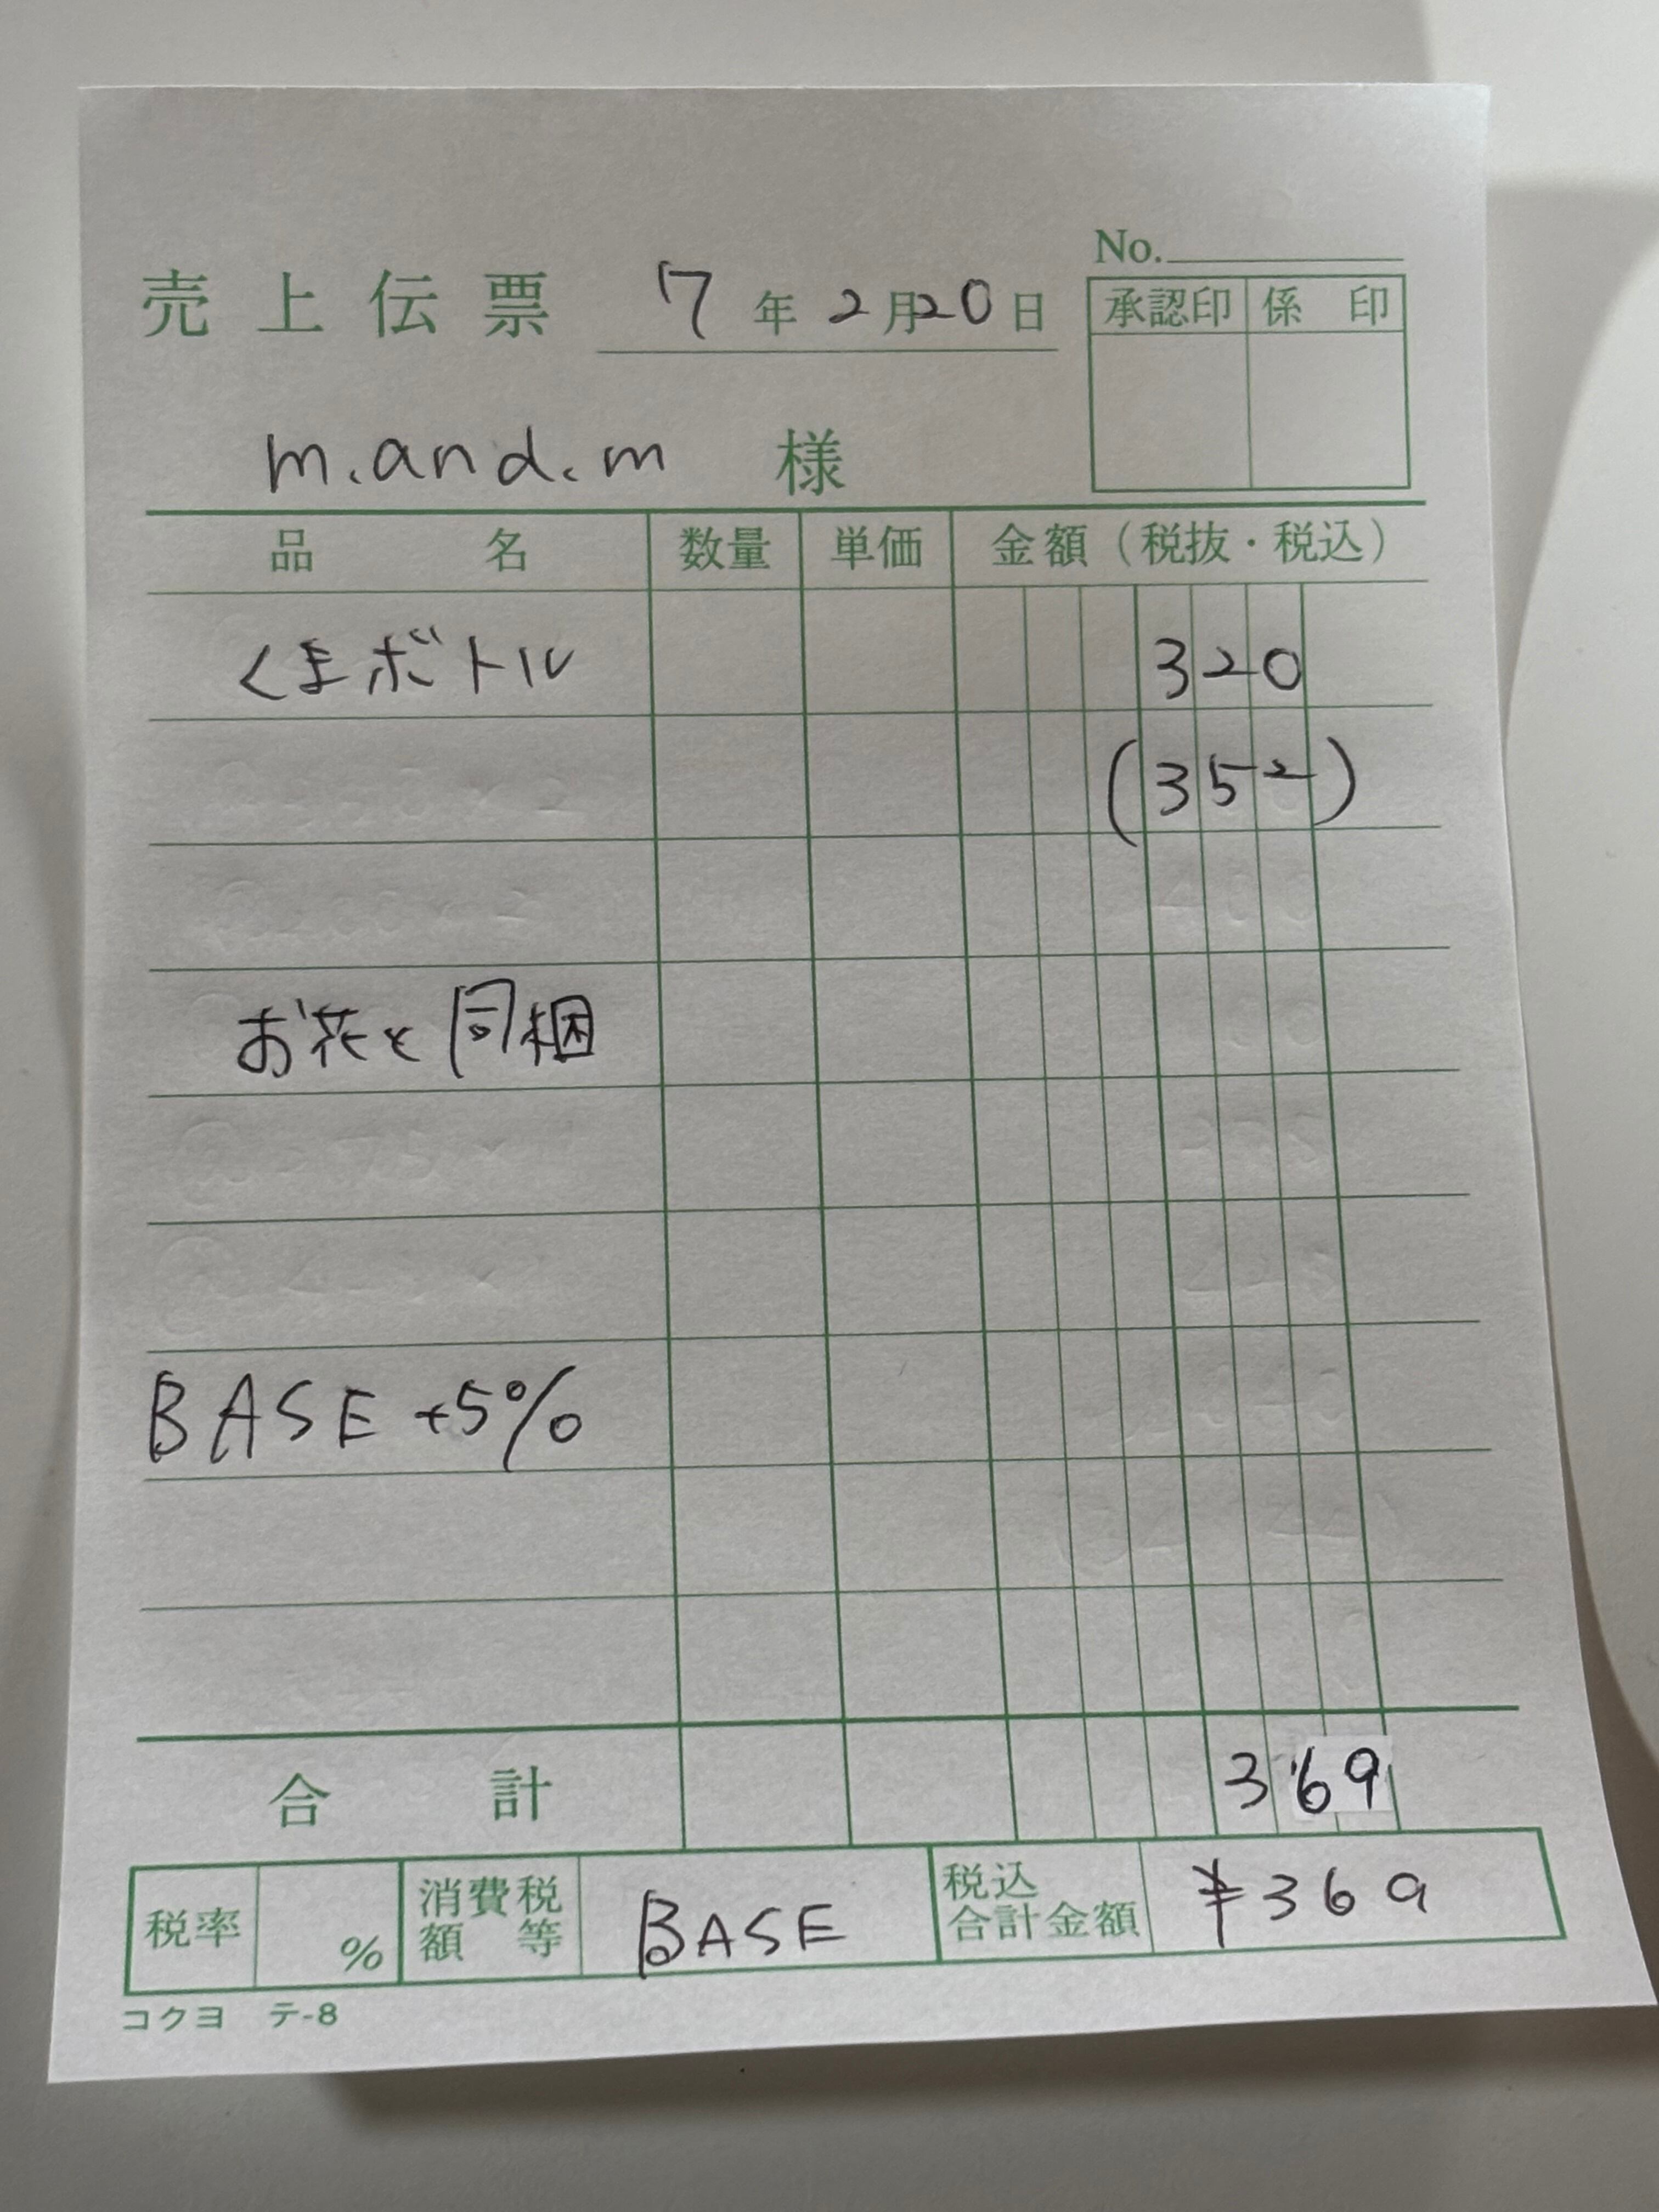 No.
売上伝票 7年2月20日
承認印 係印
m.and.m 様
品名 数量 単価 金額（税抜・税込）
くまボトル 320
(352)
お花と同梱
BASE +5%
合計 369
税率 % 消費税額等 BASE 税込合計金額 ¥369
コクヨ テ-8